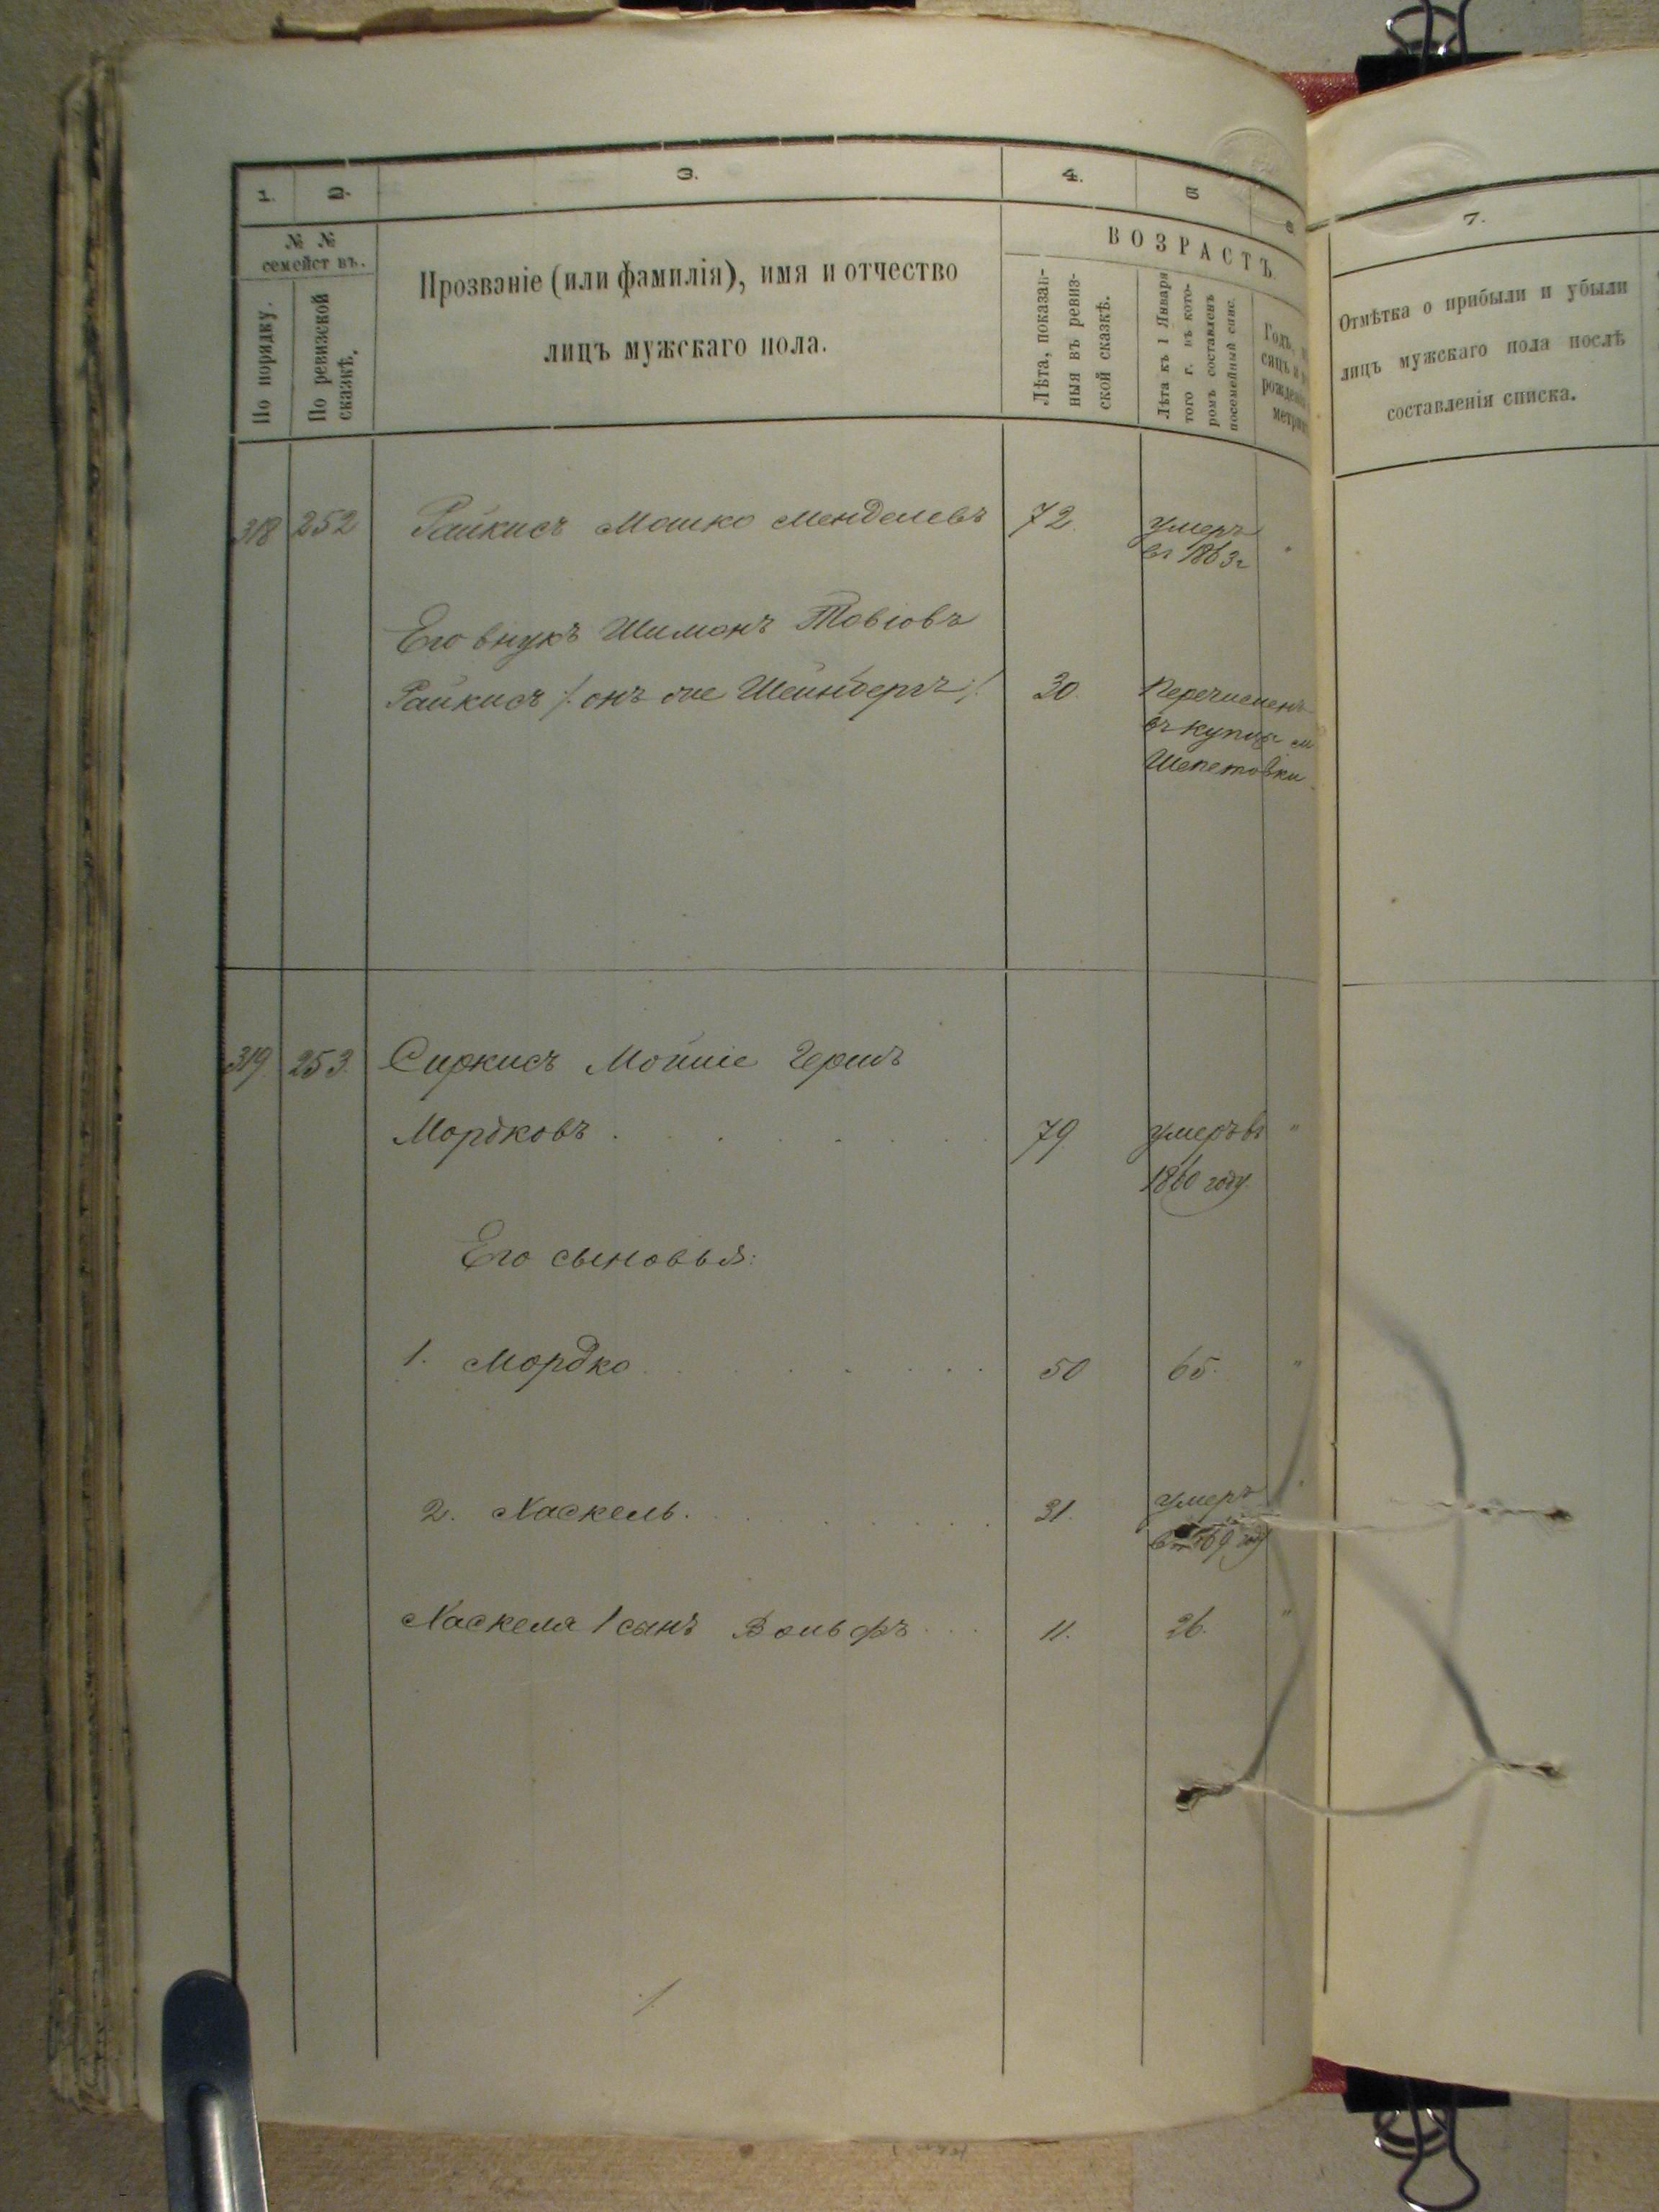 1. 2. 3. 4. 5 6 7.
№ № семействъ.
По порядку.
По ревизской сказкѣ.
Прозваніе (или фамилія), имя и отчество
лицъ мужскаго пола.
ВОЗРАСТЪ.
Лѣта, показан-
ныя въ ревиз-
ской сказкѣ.
Лѣта къ 1 Января
того г. въ кото-
ромъ составленъ
посемейный спис.
Годъ,
сяцъ и
рожден
метри
Отмѣтка о прибыли и убыли
лицъ мужскаго пола послѣ
составленія списка.
318 252 Райкисъ Мошко Менделевъ 72. умеръ "
въ 1863 г
Его внукъ Шимонъ Товіовъ
Райкисъ /: онъ же Шейнбергъ :/ 30. Перечисленъ
въ купцы м
Шепетовки
319. 253. Сиркисъ Мойше Гершъ
Мордковъ 79. умеръ въ "
1860 году.
Его сыновья:
1. Мордко 50 65. "
2. Хаскель. 31. умеръ "
въ 1869 году
Хаскеля 1 сынъ Вольфъ 11. 26. "